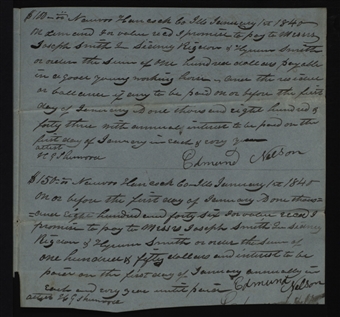 $100.00 Nauvoo Hancock Co Ills January 1st 1840
on demand for value recd I promise to pay to Messrs
Joseph Smith Jr Sidney Rigdon & Hyrum Smith
or order the sum of one hundred dollars payable
in a good young working horse and the residue
or ballance if any to be paid on or before the first
day of January one thousand eight hundred &
forty three with annual interest to be paid on the
first day of January in each & evry year
attest
H G Sherwood
Edmund Nelson
$150.00 Nauvoo Hancock Co Ills January 1st 1840
on or before the first day of January one thous
and eight hundred and forty six for value recd I
promise to pay to Messrs Joseph Smith Jr Sidney
Rigdon & Hyrum Smith or order the sum of
one hundred & fifty dollars and interest to be
paid on the first day of January annually in
each and evry year until paid Edmund Nelson
attest H G Sherwood